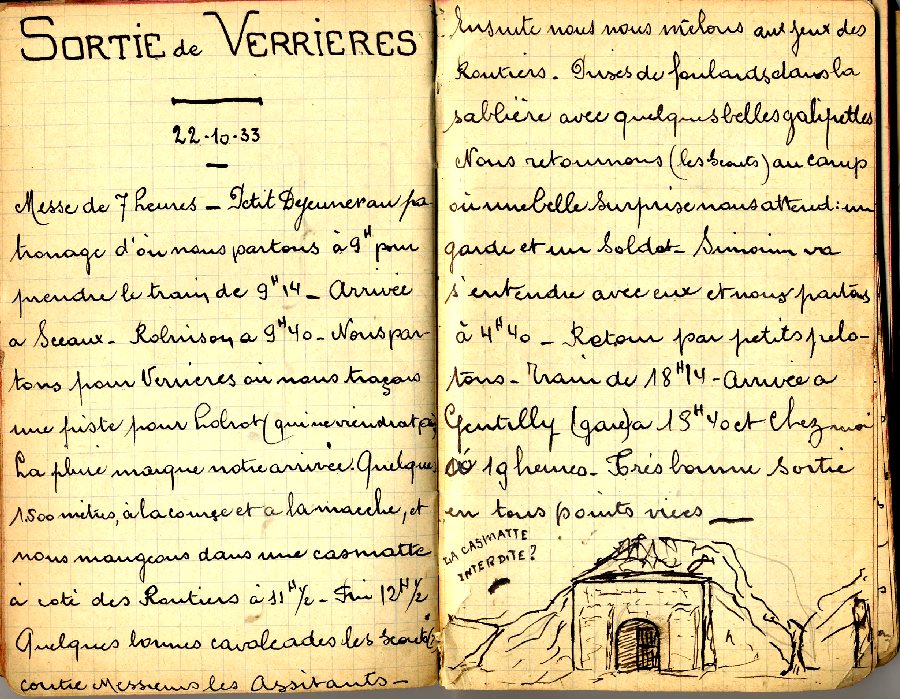 SORTIE de VERRIERES
22-10-33
Messe de 7 heures – Petit Dejeuner au pa-
tronage d'où nous partons à 9H pour
prendre le train, de 9H14 – Arrivée
a Sceaux – Robinson, a 9H40 – Nous par-
tons pour Verrieres où nous traçons
une piste pour Lobrot (qui ne viendrat pas)
La pluie marque notre arrivée. Quelque
1.500 mètres, à la course et a la marche, et
nous mangeons dans une casmatte
à coté des Routiers à 11H1/2 – Fin 12H1/2
Quelques bonnes cavalcades les scouts
contre Messieurs les Assitants –
Ensuite nous nous mêlons aux jeux des
Routiers – Prises de foulards dans la
sablière avec quelques belles galipettes
Nous retournons (les scouts) au camp
où une belle surprise nous attend : un
garde et un soldat – va
s'entendre avec eux et nous partons
à 4H40 – Retour par petits pelo-
tons – Train de 18H14 – Arrivée a
Gentilly (gare) a 18H40 et Chez moi
19 heures – Très bonne sortie
en tous points vues
LA CASMATTE
INTERDITE ?